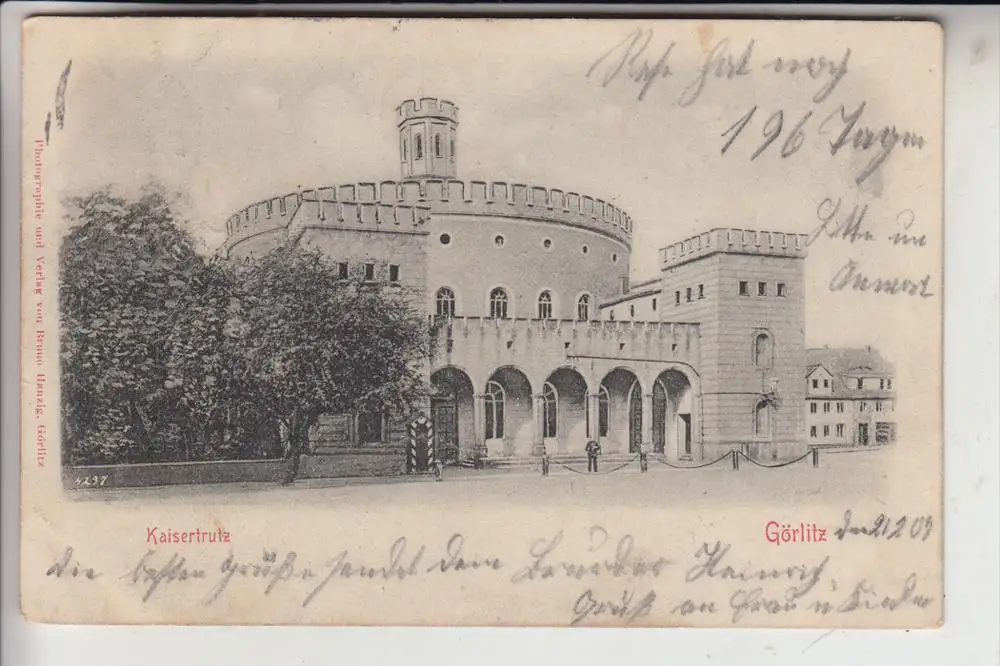 Rese hat noch
196 Tagen
Bitte um
Antwort
Photographie und Verlag von Bruno Hanzig, Görlitz
4237
Kaisertrutz
Görlitz den 21 2 03
die besten Grüße sendet dein Bruder Heinrich,
Gruß an Frau u Kinder